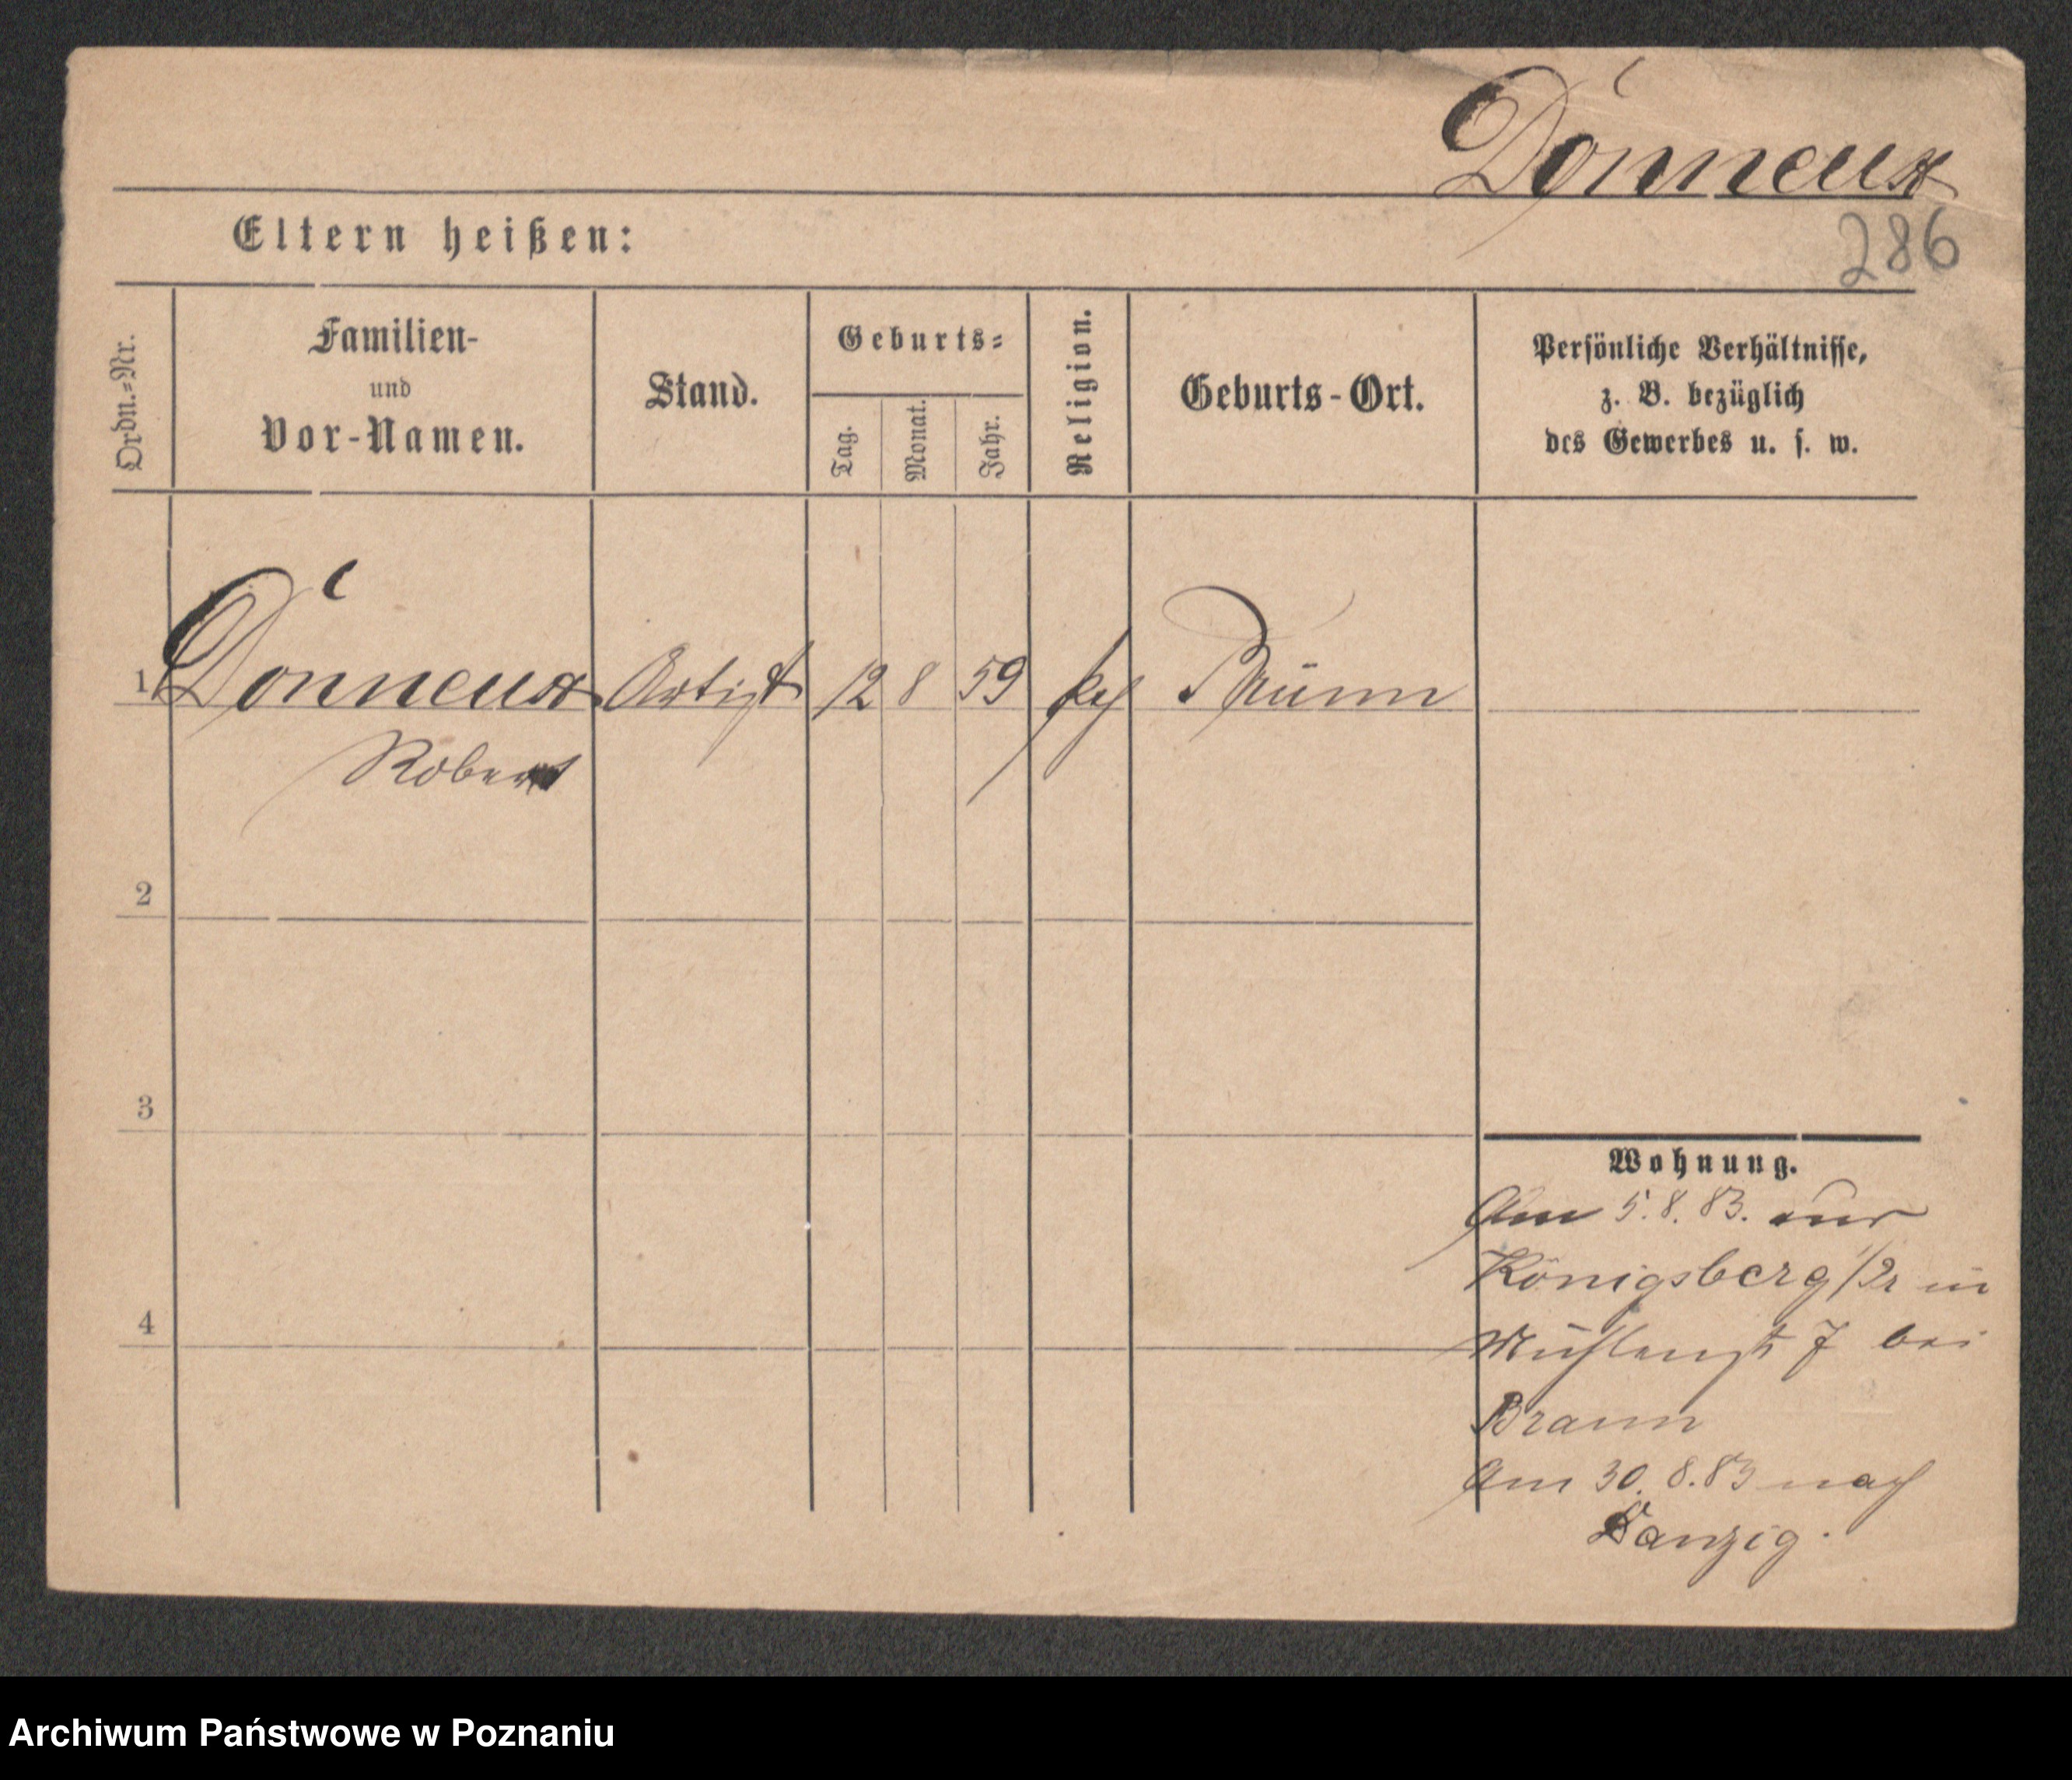 Donneux
286
Eltern heißen:
Ordn.=Nr.
Familien-
und
Vor-Namen.
Stand.
Geburts=
Tag.
Monat.
Jahr.
Religion.
Geburts-Ort.
Persönliche Verhältnisse,
z. B. bezüglich
des Gewerbes u. s. w.
1 Donneux Artist 12 8 59 Brünn
Robert
2
3
4
Wohnung.
Am 5.8.83. aus
Königsberg /Pr in
Mühlenst 7 bei
Braun
Am 30.8.83 nach
Danzig.
Archiwum Państwowe w Poznaniu